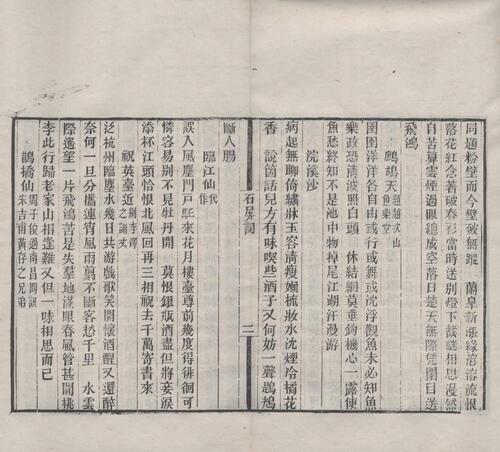 同題粉壁而今壁破無蹤　蘭皐新漲綠溶溶流恨
落花紅念著破春衫當時送別燈下裁縫相思漫然
自苦算雲煙過眼總成空落日楚天無際凭闌目送
飛鴻
鷓鴣天題趙次山魚樂堂
圉圉洋洋各自由或行或舞或沈浮觀魚未必知魚
樂政恐清波照白頭　休結網莫垂鉤機心一露使
魚愁終知不是池中物掉尾江湖汗漫游
浣溪沙
病起無聊倚繡牀玉容淸瘦嬾梳妝水沈煙冷橘花
香　說箇話兒方有味喫些酒子又何妨一聲鶗鴂
斷人腸
石屏詞
三
臨江仙代作
誤入風塵門戶驅來花月樓臺尊前幾度得徘徊可
憐容易別不見牡丹開　莫恨銀瓶酒盡但將妾淚
添杯江頭恰恨北風回再三相祝去千萬寄書來
祝英臺近別李澤之諸丈
泛杭州臨塵水幾日共游戲歌笑開懷酒醒又還醉
奈何一旦分攜連宵風雨翦不斷客愁千里　水雲
際遙望一片飛鴻苦是失羣地滿眼春風管甚閒桃
李此行歸老家山相逢難又但一味相思而已
鵲橋仙周子俊過南昌問訊朱吉甫黃存之兄弟